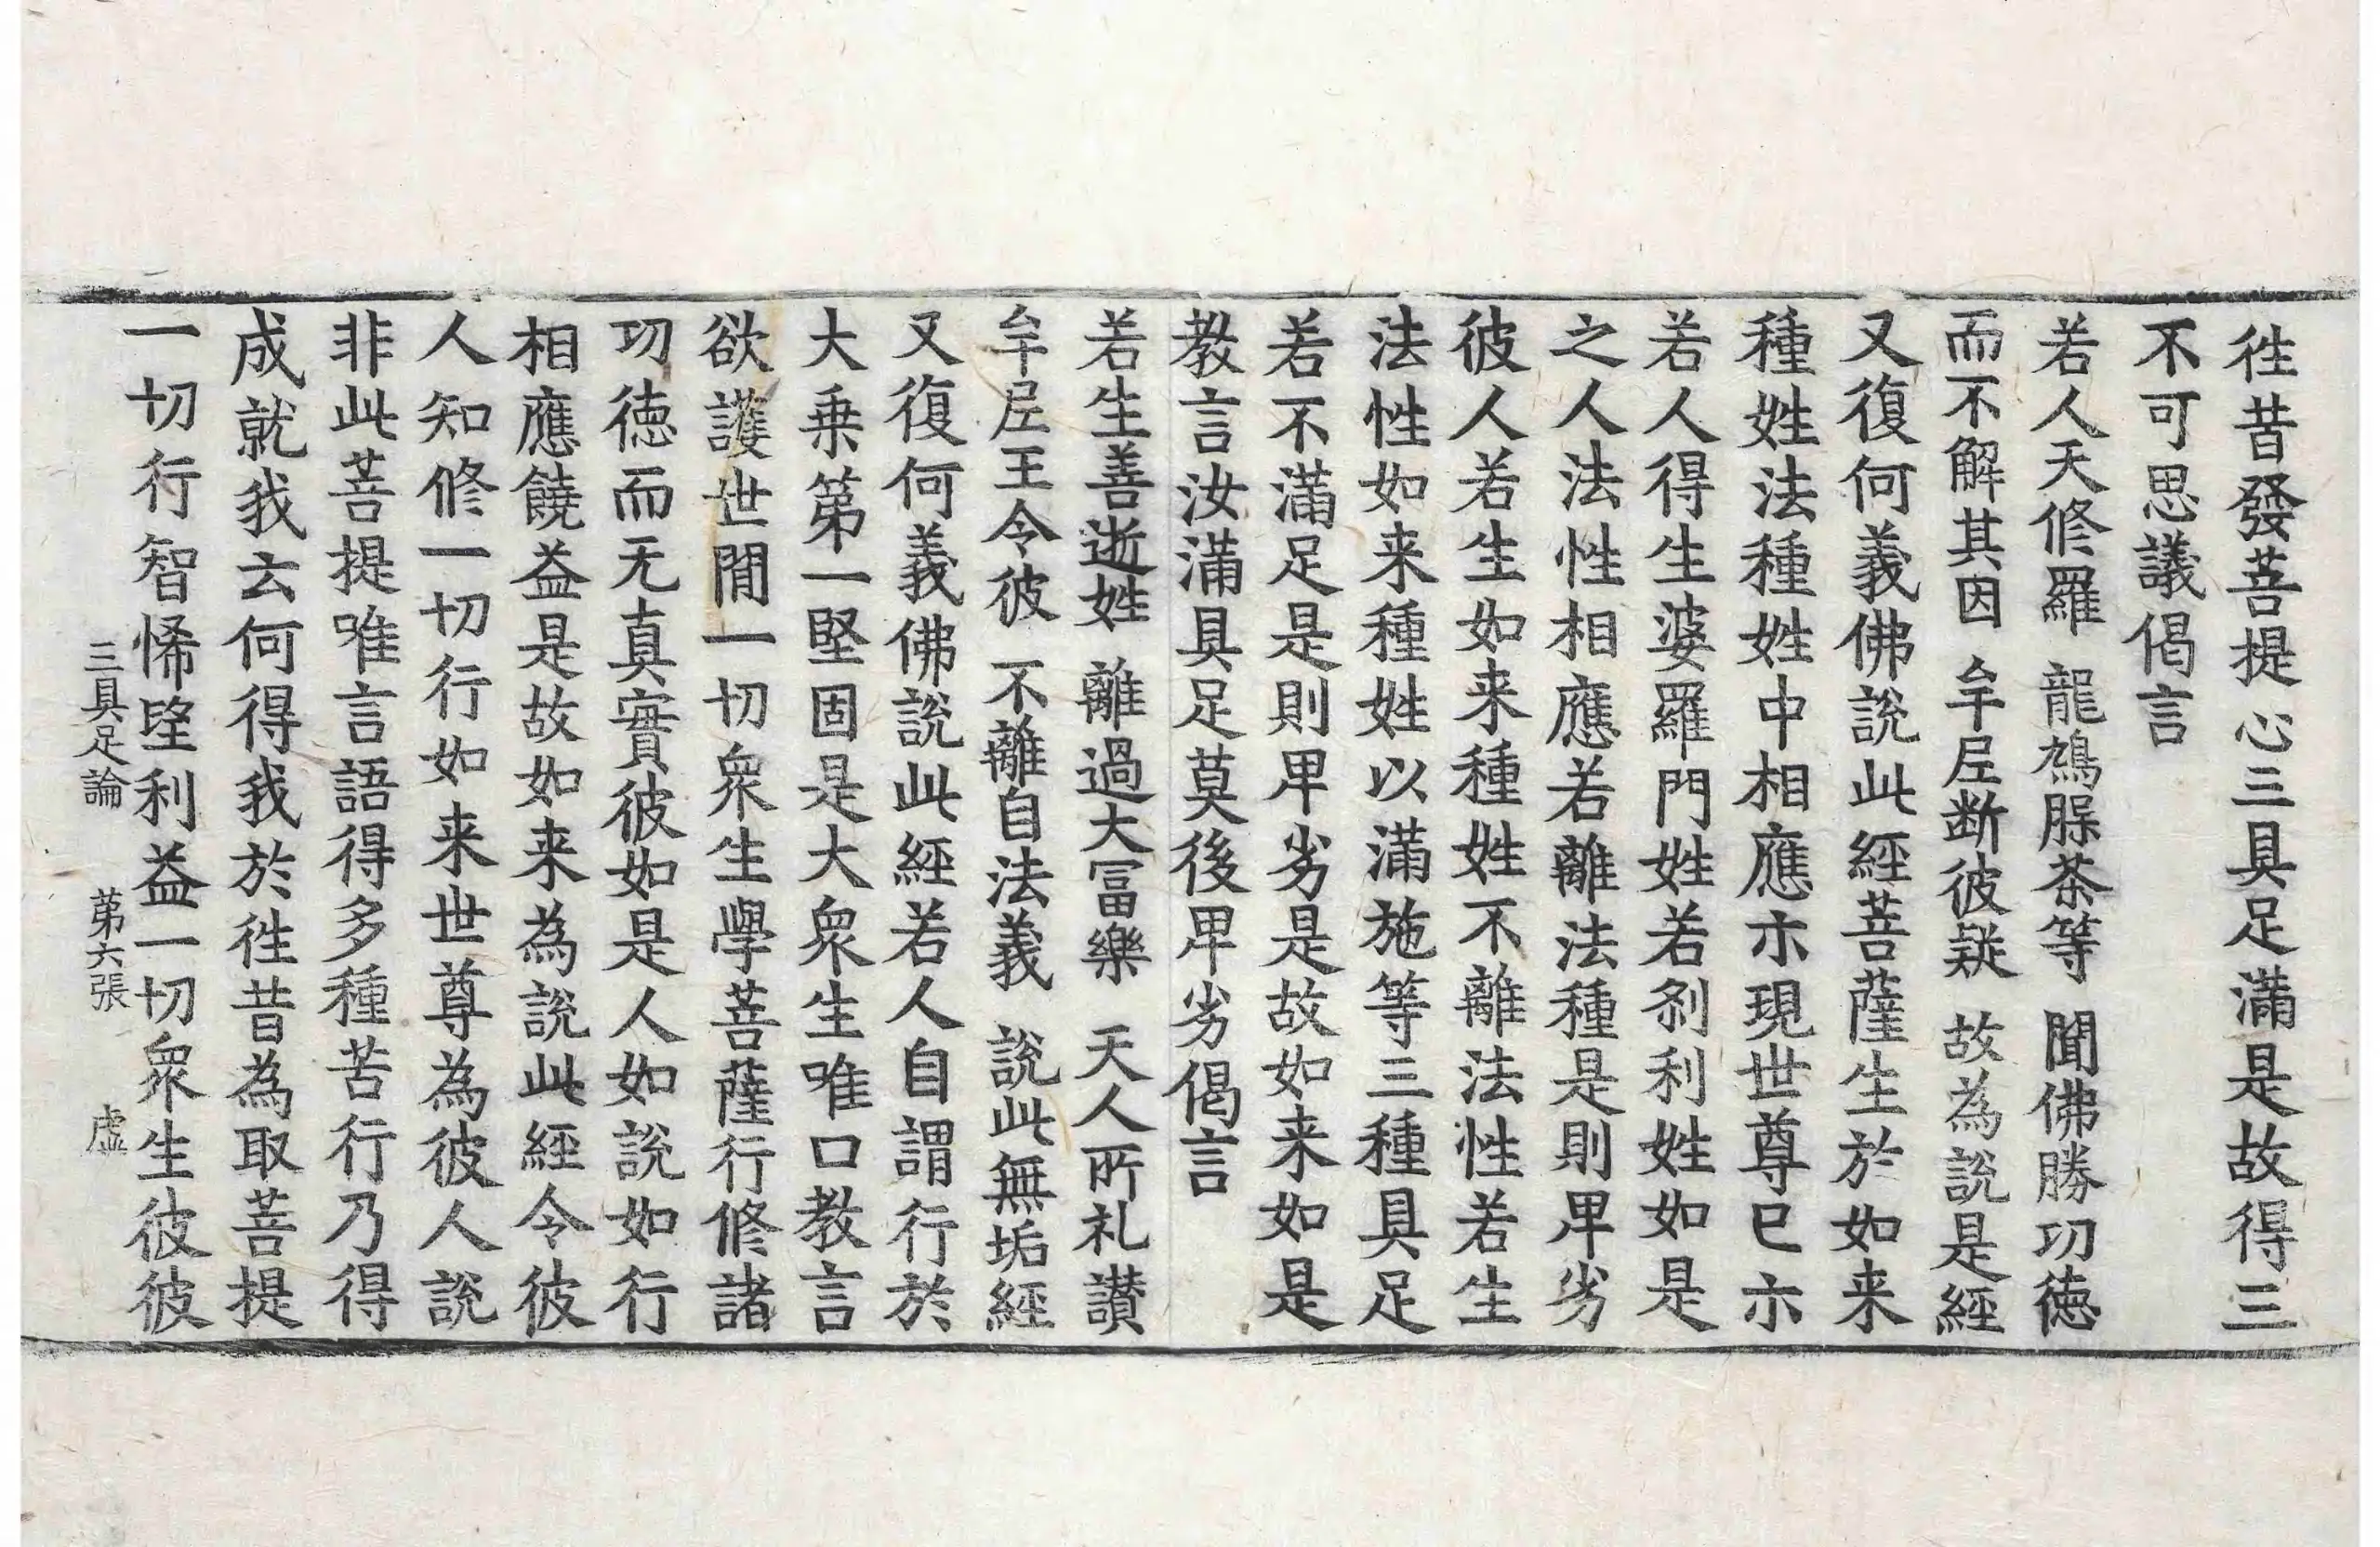 徃昔發菩提心三具足滿是故得三
不可思議偈言
若人天修羅　龍鵄脲茶等　聞佛勝功徳
而不解其因　牟𡰱断彼疑　故為說是經
又復何義佛說此經菩薩生於如来
種姓法種姓中相應示現世尊已示
若人得生婆羅門姓若刹利姓如是
之人法性相應若離法種是則卑劣
彼人若生如来種姓不離法性若生
法性如来種姓以滿施等三種具足
若不滿足是則卑劣是故如来如是
教言汝滿具足莫後卑劣偈言
若生善逝姓　離過大冨樂　天人所礼讃
牟𡰱王令彼　不離自法義　說此無垢經
又復何義佛說此經若人自謂行於
大乗苐一堅固是大衆生唯口教言
欲護世閒一切衆生學菩薩行修諸
功徳而无真實彼如是人如說如行
相應饒益是故如来為說此經令彼
人知修一切行如来世尊為彼人說
非此菩提唯言語得多種苦行乃得
成就我云何得我於徃昔為取菩提
一切行智悕望利益一切衆生彼彼
三具足論　苐六張　虛